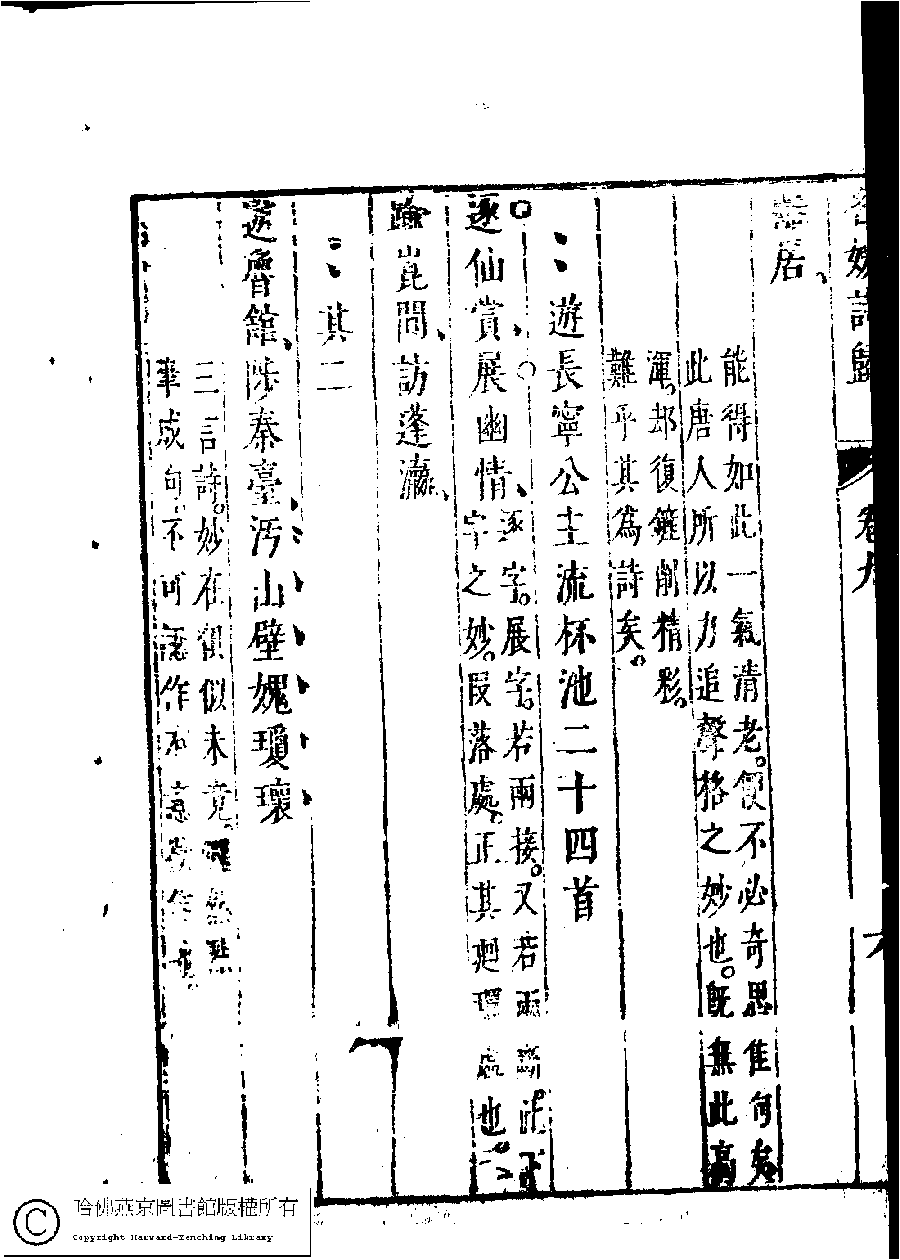 名媛詩歸 卷九 六
居
能得如此一氣清老便不必奇思佳句矣
此唐人所以力追聲格之妙也既無此高
渾却復鏟削精彩
難乎其為詩矣
遊長寧公主流杯池二十四首
逐仙賞展幽情
逐字展字若兩接又若兩斷此正
字之妙段落處正其廻環處也
踰崑閬訪蓬瀛
其二
遊魯館陟秦臺汚山壁媿瓊瓌
三言詩妙在俱似未竟
筆成句不可認作不意
哈佛燕京圖書館版權所有
Copyright Harvard-Yenching Library